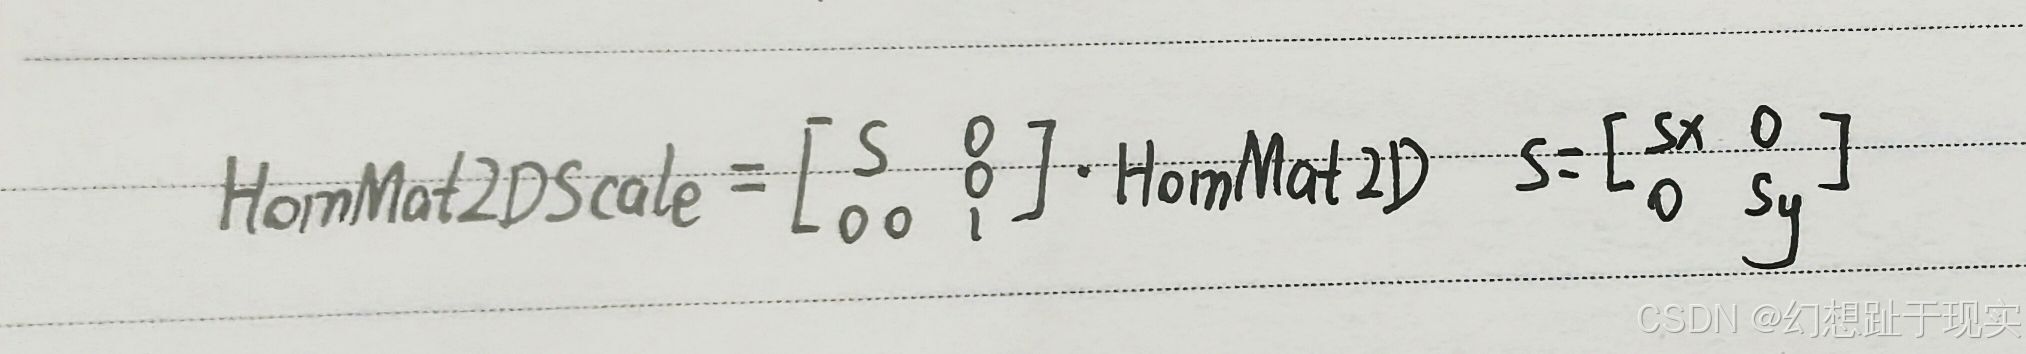 HomMat2DScale = [ S 0 0 0 0 1 ] · HomMat2D S = [ Sx 0 0 Sy ]
CSDN @幻想趾于现实